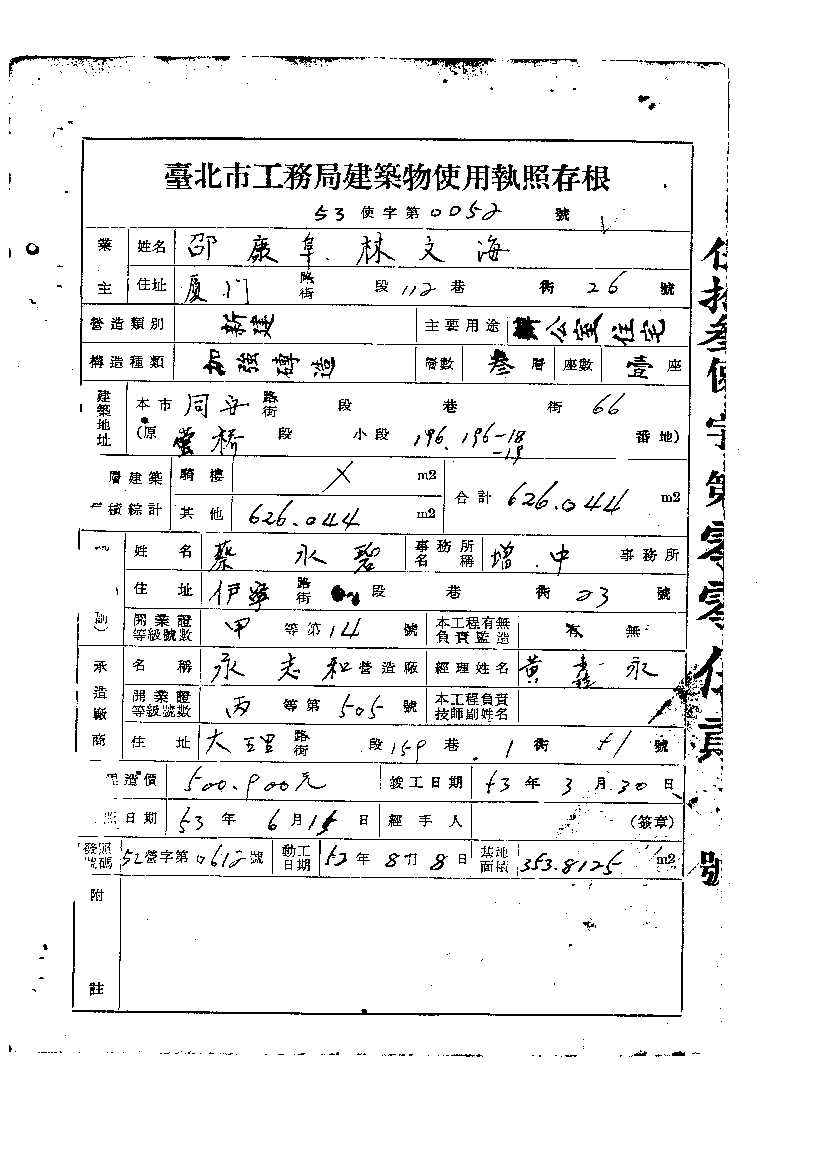 臺北市工務局建築物使用執照存根
53 使字第 0052 號
業主 姓名 邵康阜.林文海
住址 厦门 路街 段 112 巷 衖 26 號
營造類別 新建 主要用途 辦公室住宅
構造種類 加強磚造 層數 叁 層 座數 壹 座
建築地址 本市 同安 路街 段 巷 衖 66
(原 螢橋 段 小段 196.196-18 番地)
-19
層建築 騎樓 X m2 合計 626.044 m2
積綜計 其他 626.044 m2
姓名 蔡永 事務所名稱 增中 事務所
住址 伊寧 路街 段 巷 衖 23 號
副) 開業證等級號數 甲 等第 14 號 本工程有無負責監造 有 無
承造廠商 名稱 永志和 營造廠 經理姓名 黃 永
開業證等級號數 丙 等第 505 號 本工程負責技師副姓名
住址 大理 路街 段 159 巷 1 衖 號
造價 500.900元 竣工日期 53 年 3 月 30 日
日期 53 年 6 月 15 日 經手人 (簽章)
發照號碼 52 營字第 0612 號 動工日期 52 年 8 月 8 日 基地面積 353.8125 m2
附註
伍拾叁使字第零零伍貳號